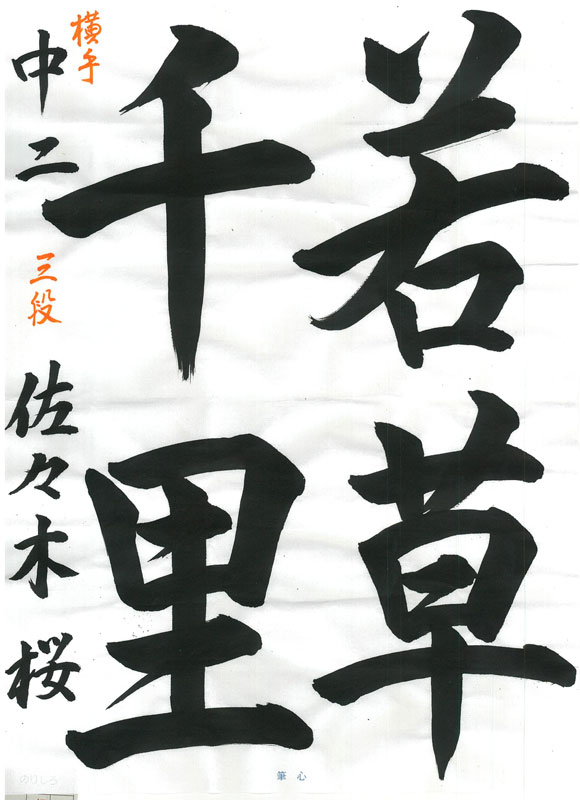 若草
千里
横手
中二
三段
佐々木 桜
筆心
のりしろ